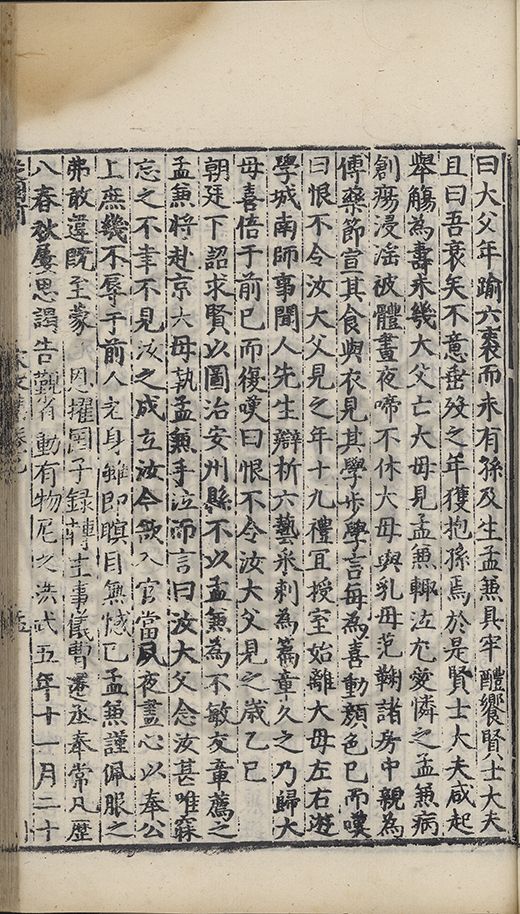 曰大父年踰六袠而未有孫及生孟兼具牢醴饗賢士大夫
且曰吾衰矣不意垂歿之年獲抱孫焉於是賢士大夫咸起
舉觴為壽未幾大父亡大母見孟兼輙泣尤愛憐之孟兼病
創瘍浸滛被體晝夜啼不休大母與乳母范鞠諸房中親為
傅藥節宣其食與衣見其學步學言母為喜動顔色已而嘆
曰恨不令汝大父見之年十九禮冝授室始離大母左右遊
學城南師事聞人先生辯析六藝采刺為篇章久之乃歸大
母喜悟于前已而復嘆曰恨不令汝大父見之歳乙巳
朝廷下詔求賢以圖治安州縣不以孟兼為不敏交章薦之
孟兼將赴京大母執孟兼手泣而言曰汝大父念汝甚唯寐
忘之不幸不見汝之成立汝今欲入官當夙夜盡心以奉公
上庶幾不辱于前人老身雖即瞑目無憾已孟兼謹佩服之
弗敢違既至蒙 恩擢國子録轉主事儀曹遷丞奉常凡歷
八春秋屢思謁告覲省動有物尼之洪武五年十一月二十